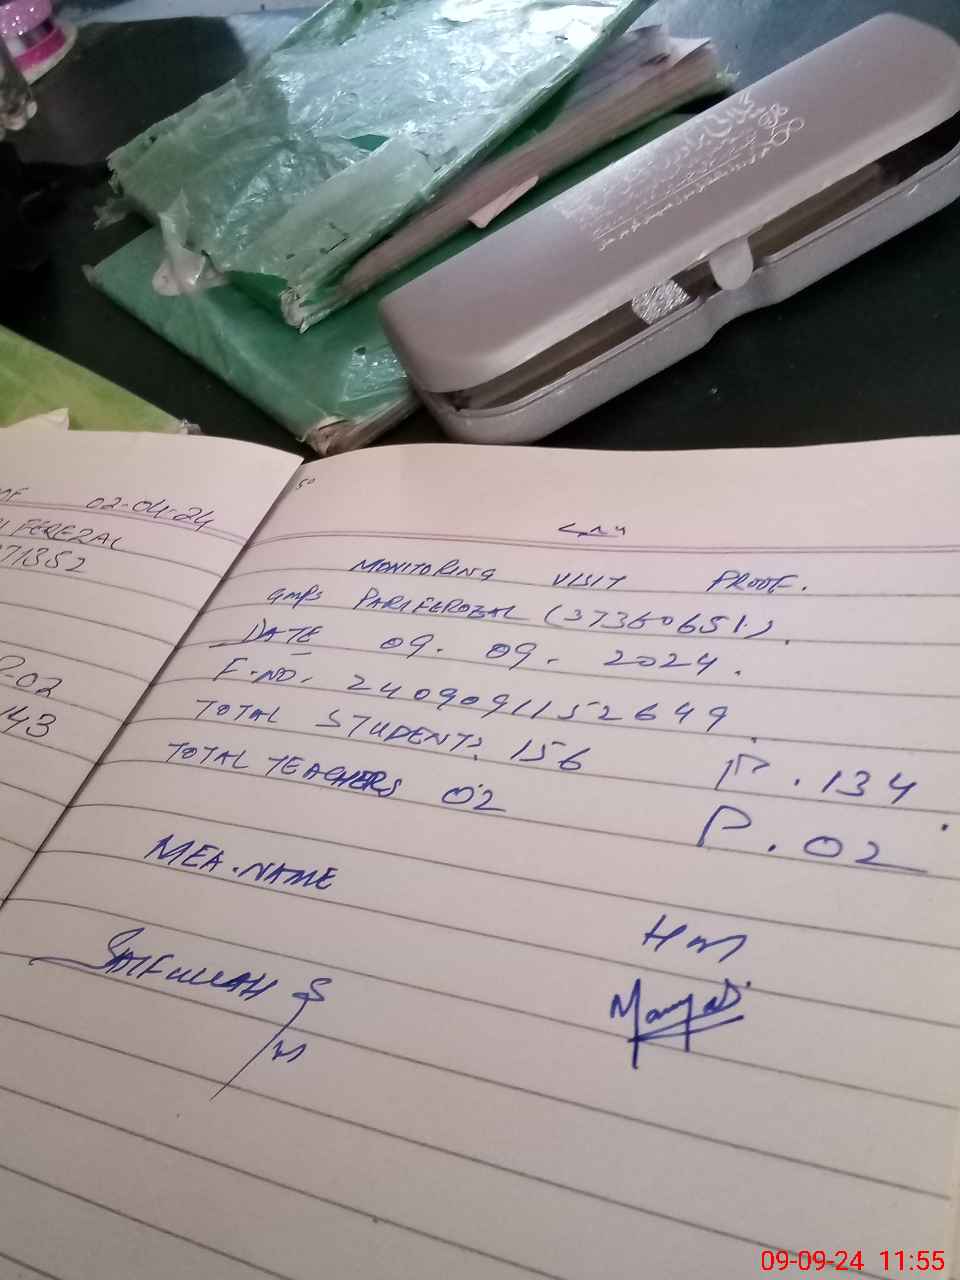 02-04-24
FEREZAL
71352
P-02
143
50
MONITORING VISIT PROOF.
GMPS PARIFEROZAL (37360651).
DATE 09. 09. 2024.
F.NO. 2409091152649.
TOTAL STUDENTS. 156 P. 134
TOTAL TEACHERS 02 P. 02
MEA. NAME
HM
SAIFULLAH S
09-09-24 11:55